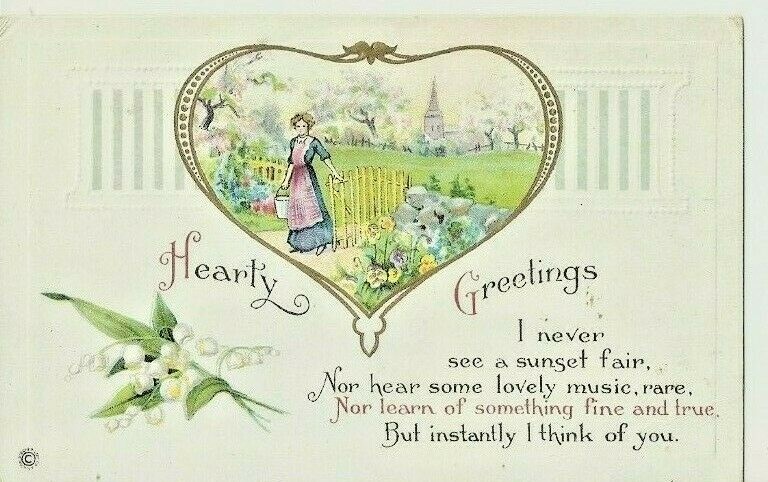 Hearty Greetings
I never
see a sunset fair,
Nor hear some lovely music, rare,
Nor learn of something fine and true,
But instantly I think of you.
©